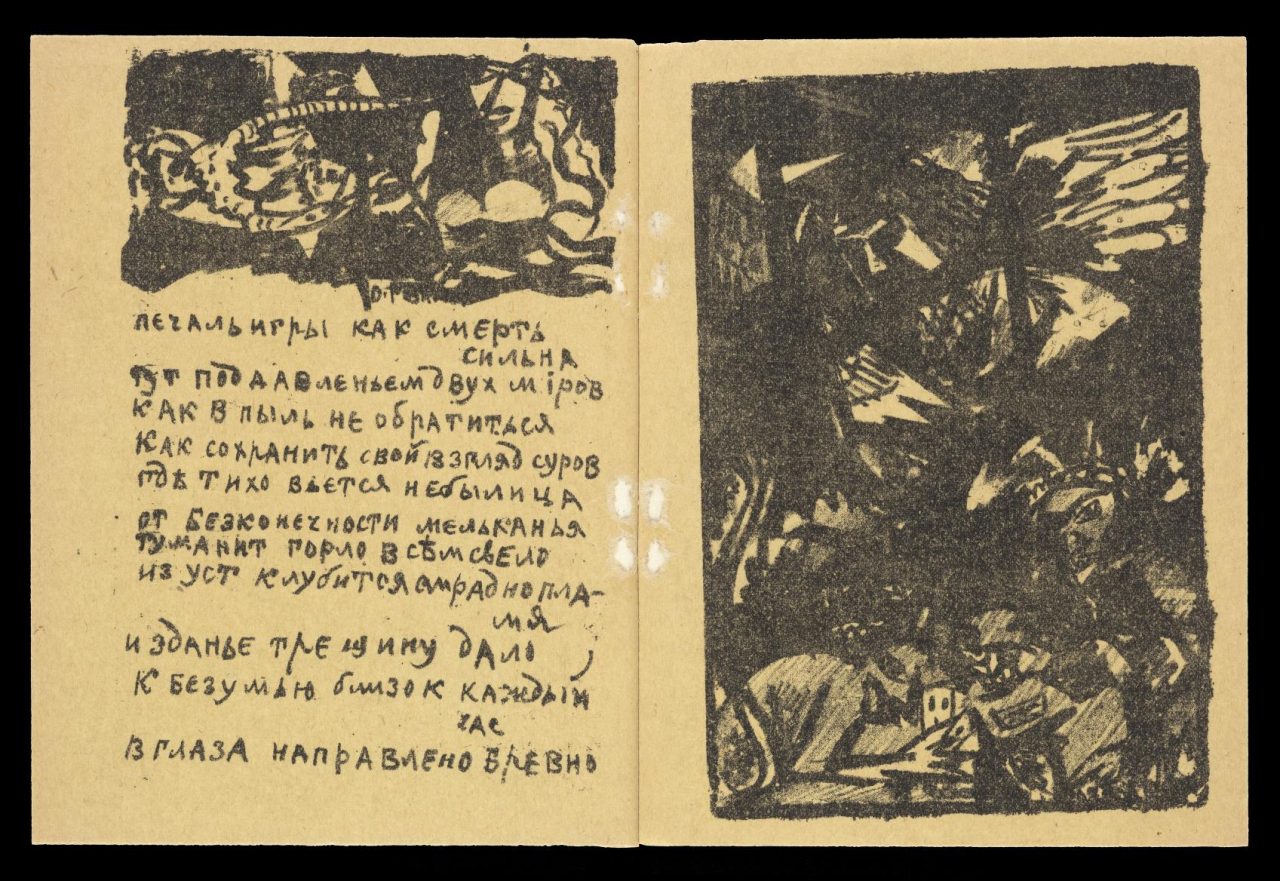 печаль игры как смерть
сильна
тут под давленьем двух мiров
как в пыль не обратиться
как сохранить свой взгляд суров
гдѣ тихо вьется небылица
от безконечности мельканья
туманит горло всѣм свело
из уст клубится смрадно пла-
мя
и зданье трещину дало
к безумью близок каждый
час
в глаза направлено бревно